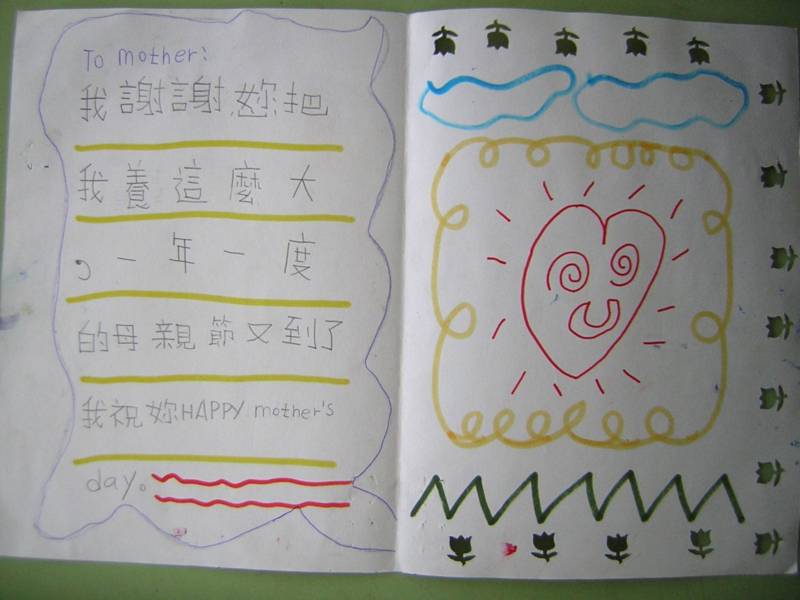 To mother:
我謝謝妳把
我養這麼大
，一年一度
的母親節又到了
我祝妳HAPPY mother's
day。